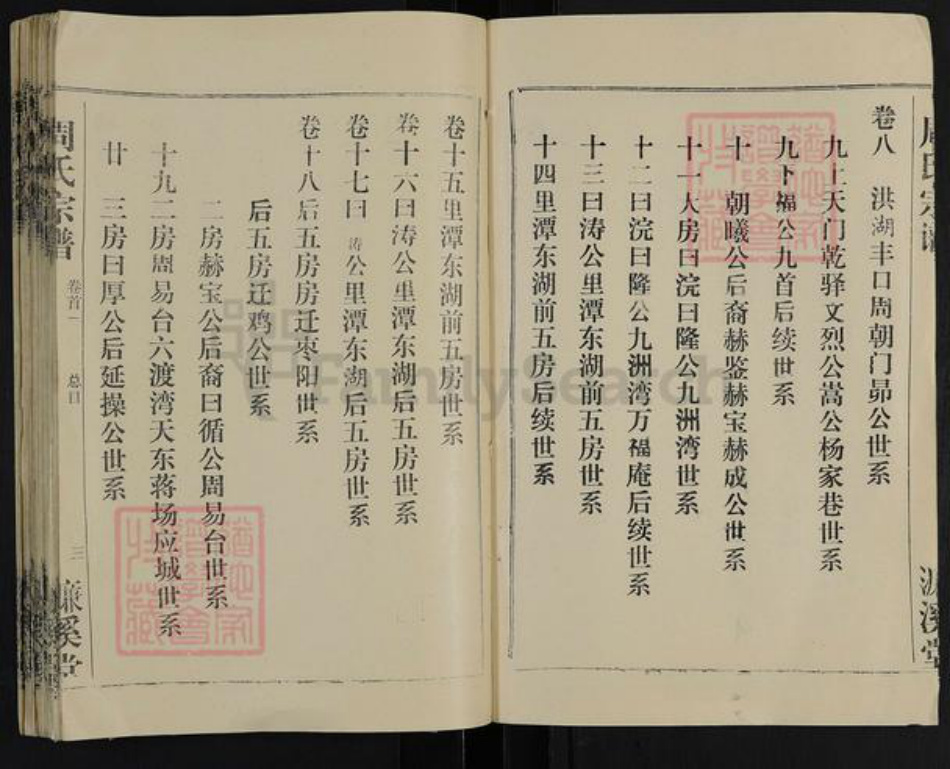 卷八　洪湖丰口周朝门昴公世系
九上天门乾驿文烈公嵩公杨家巷世系
九下福公九首后续世系
十　朝曦公后裔赫鉴赫宝赫成公世系
十一大房曰浣曰隆公九洲湾世系
十二曰浣曰隆公九洲湾万福庵后续世系
十三曰涛公里潭东湖前五房世系
十四里潭东湖前五房后续世系
卷十五里潭东湖前五房世系
卷十六曰涛公里潭东湖后五房世系
卷十七曰涛公里潭东湖后五房世系
卷十八后五房房迁枣阳世系
后五房迁鸡公世系
二房赫宝公后裔曰循公周易台世系
十九二房周易台六渡湾天东蒋场应城世系
廿　三房曰厚公后延操公世系
周氏宗谱　卷首一　总目　三　濂溪堂
周氏宗谱　濂溪堂
FamilySearch